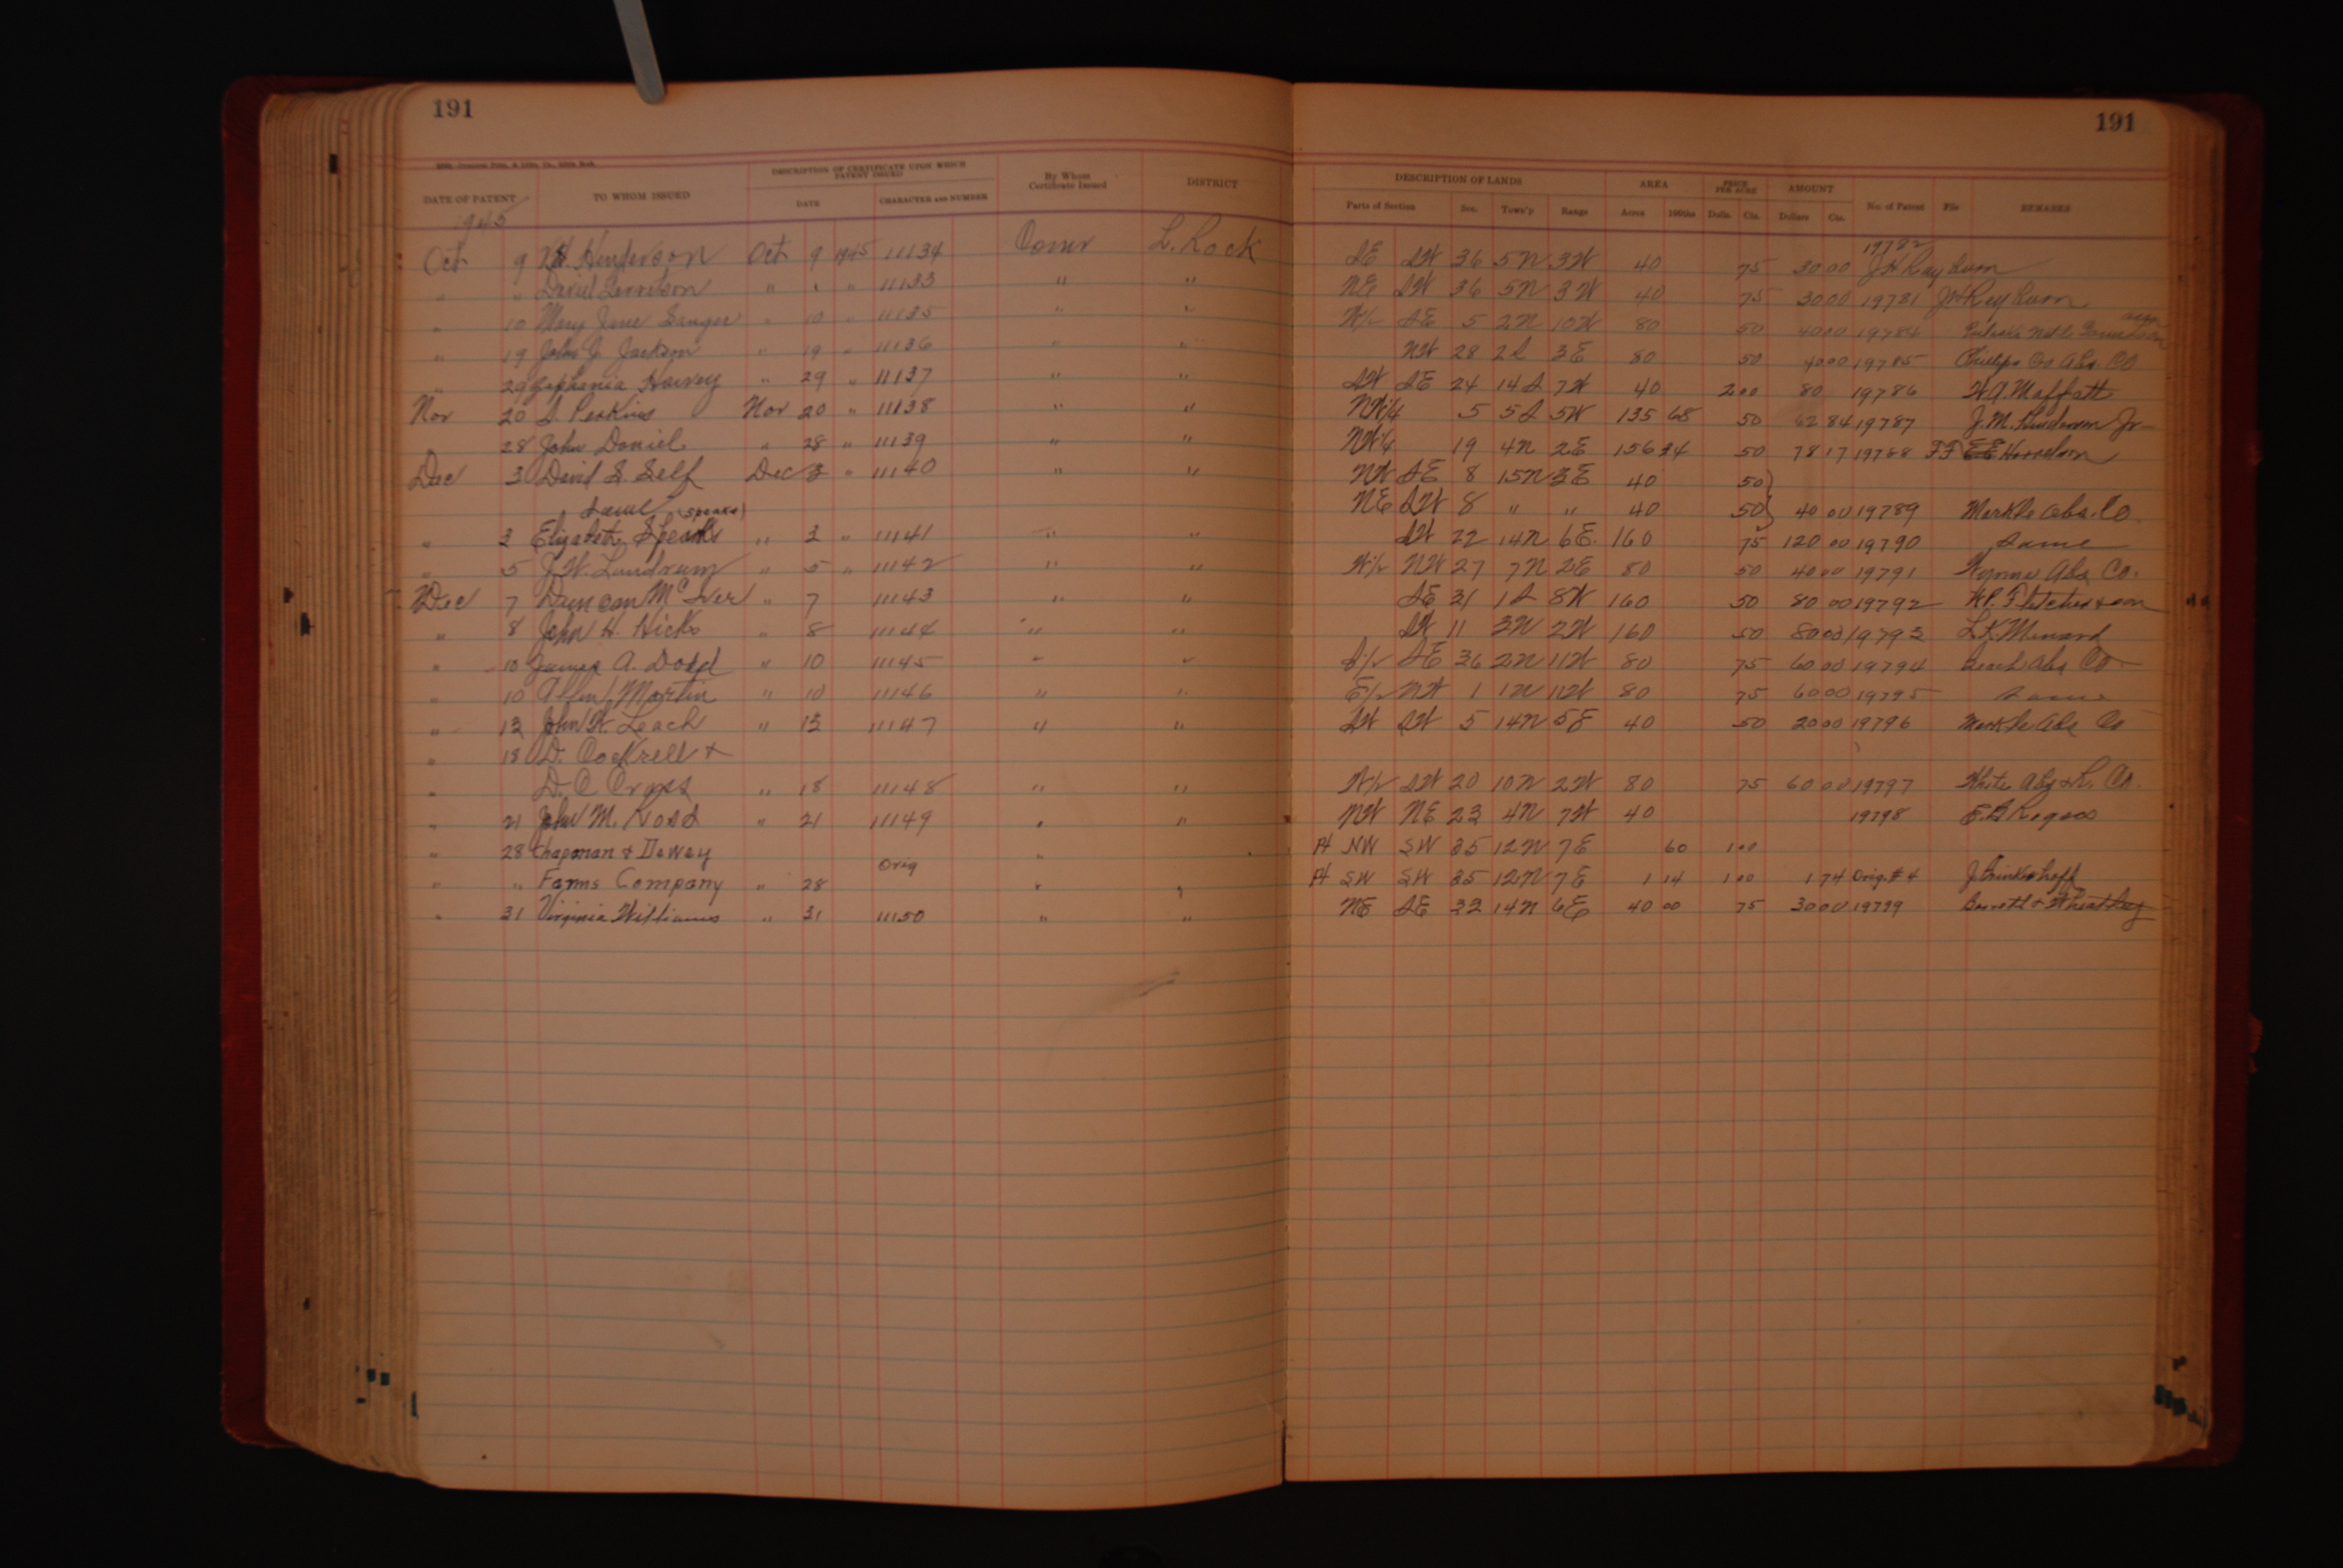 191
191
DATE OF PATENT TO WHOM ISSUED DESCRIPTION OF CERTIFICATE UPON WHICH PATENT ISSUED DATE CHARACTER AND NUMBER By Whom Certificate Issued DISTRICT DESCRIPTION OF LANDS Parts of Section Sec. Town'p Range AREA Acres 100ths PRICE PER ACRE Dolls. Cts. AMOUNT Dollars Cts. No. of Patent File REMARKS
1945
Oct 9 Henderson Oct 9 1945 11134 Comr L. Rock SE SW 36 5N 3W 40 75 30 00 19782 J H Rayburn
" " David " " " 11133 " " NE SW 36 5N 3W 40 75 30 00 19781 J H Rayburn
" 10 Mary Jane Sanger " 10 " 11135 " " W/2 SE 5 2N 10W 80 50 40 00 19784
" 19 John J. Jackson " 19 " 11136 " " NW 28 2S 3E 80 50 40 00 19785 Phillips Co Abs Co
" 29 Zephania Harvey " 29 " 11137 " " SW SE 24 14S 7W 40 2 00 80 19786 W A. Moffatt
Nov 20 S. Perkins Nov 20 " 11138 " " NW/4 5 5S 5W 135 68 50 62 84 19787 J. M. Henderson Jr
28 John Daniel " 28 " 11139 " " NW/4 19 4N 2E 156 34 50 78 17 19788
Dec 3 David S. Self Dec 3 " 11140 " " NW SE 8 15N 3E 40 50
Same NE SW 8 " " 40 50 40 00 19789 Markle Abs. Co.
(Speaks)
" 3 Elizabeth Speaks " 3 " 11141 " " SW 22 14N 6E. 160 75 120 00 19790 Same
" 5 J. W. Landrum " 5 " 11142 " " W/2 NW 27 7N 2E 80 50 40 00 19791 Wynne Abs Co.
Dec 7 Duncan McIver " 7 11143 " " SE 31 1S 8W 160 50 80 00 19792 W P. Fletcher & son
" 8 John H. Hicks " 8 11144 " " SW 11 3N 2W 160 50 80 00 19793 L. K. Menard
" 10 James A. Dodd " 10 11145 " " S/2 SE 36 2N 11W 80 75 60 00 19794 Beach Abs Co
" 10 Allen Martin " 10 11146 " " E/2 NW 1 1N 11W 80 75 60 00 19795 Same
" 13 John W. Leach " 13 11147 " " SW SW 5 14N 5E 40 50 20 00 19796 Markle Abs Co
" 18 D. Cockrell &
" D. C Cross " 18 11148 " " W/2 SW 20 10N 2W 80 75 60 00 19797 White Co.
" 21 John M. Ross " 21 11149 " " NW NE 23 4N 7W 40 19798
" 28 Chapman & Dewey Orig " Pt NW SW 35 12N 7E 60 1 00
" " Farms Company " 28 " " Pt SW SW 35 12N 7E 1 14 1 00 1 74 Orig. # 4 J. Brinkerhoff
" 31 Virginia Williams " 31 11150 " " NE SE 32 14N 6E 40 00 75 30 00 19799 Barrett & Wheatley